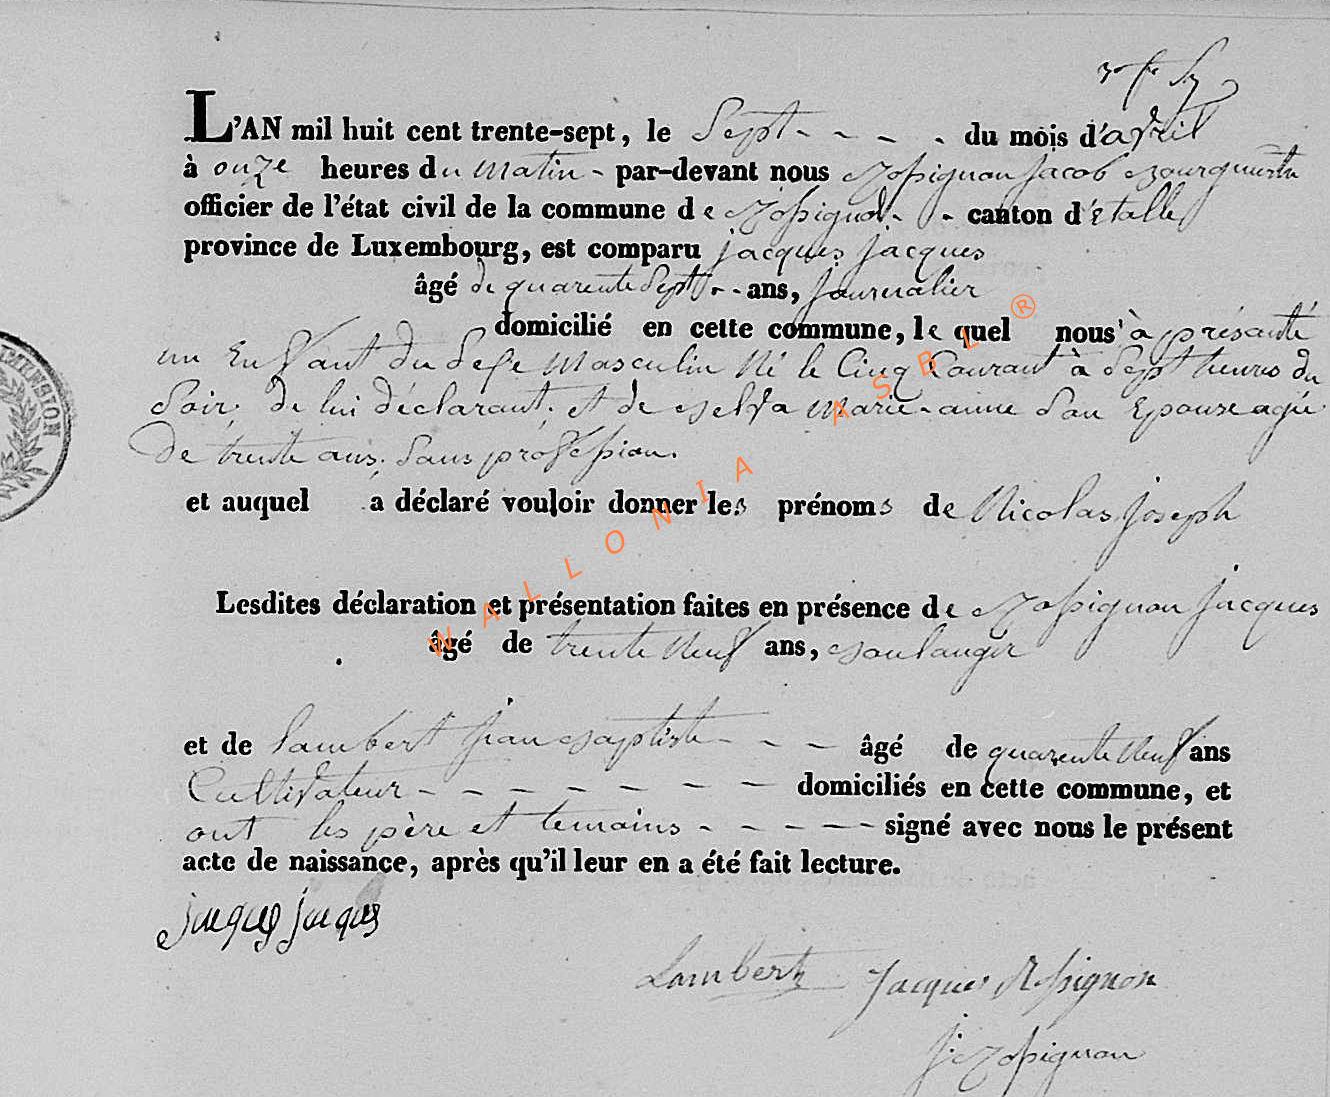 L'AN mil huit cent trente-sept, le Sept - - - - du mois d'avril
à onze heures du matin - par-devant nous Rossignon Jacob Bourguemestre
officier de l'état civil de la commune de Rossignol - - canton d'Etalle
province de Luxembourg, est comparu jacques jacques
âgé de quarente Sept - - ans, journalier
domicilié en cette commune, le quel nous à présenté
un Enfant du Sexe Masculin Né le Cinq Courant à Sept heures du
Soir. de lui déclarant. et de Marie-anne Son Epouse agée
de trente ans. Sans profession.
et auquel a déclaré vouloir donner les prénoms de Nicolas Joseph
Lesdites déclaration et présentation faites en présence de Rossignon Jacques
âgé de trente Neuf ans, Boulanger
et de Lambert Jean Baptiste - - - âgé de quarente Neuf ans
Cultivateur - - - - - - - domiciliés en cette commune, et
ont les père et temoins - - - - - signé avec nous le présent
acte de naissance, après qu'il leur en a été fait lecture.
jacques jacques
Lambert Jacques Rossignon
J: Rossignon
WALLONIA ASBL ®